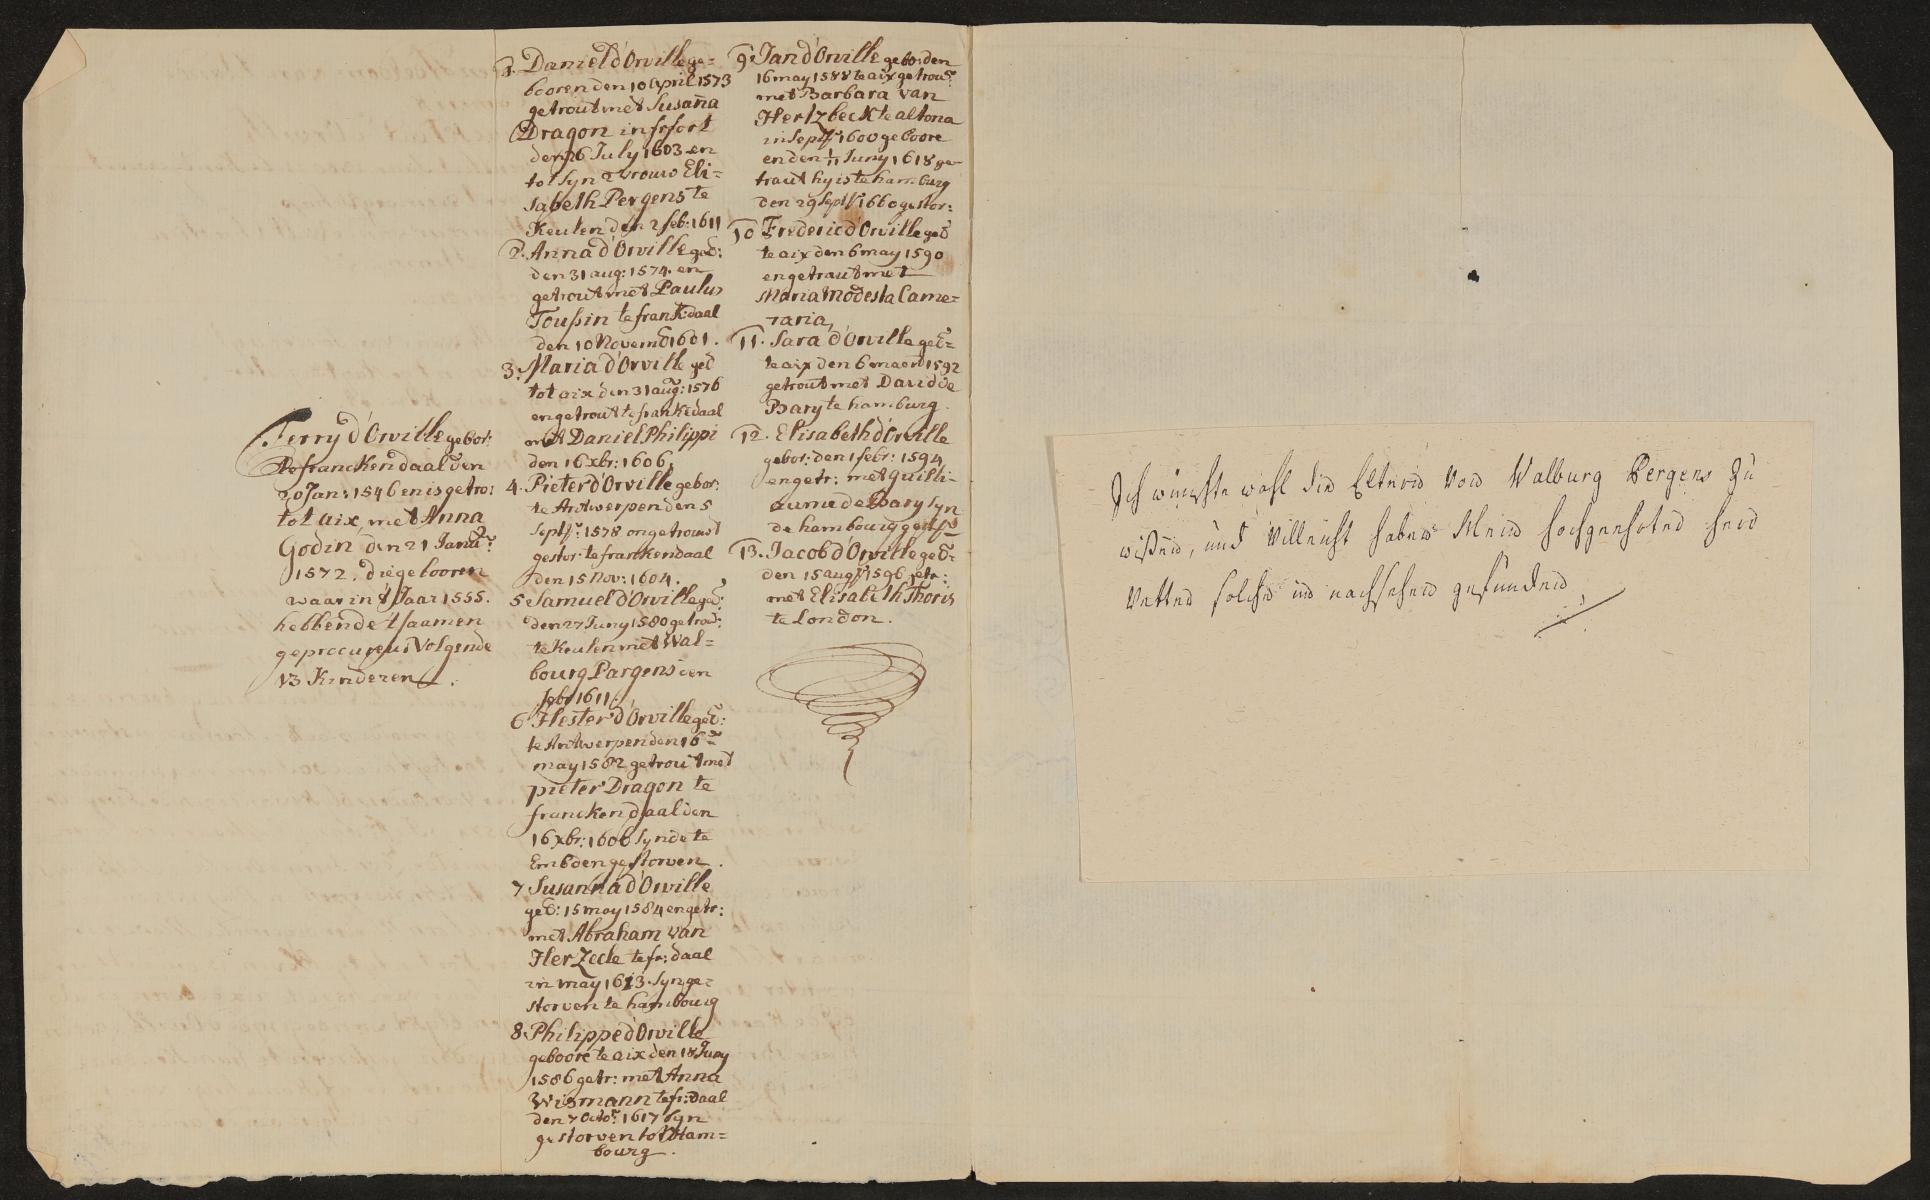 Ferry d'Orville gebor:
te franckendaal den
20 Jan: 1546 en is getro:
tot aix, met Anna
Godin den 21 Janu:r
1572. die gebooren
waar in 't Jaar 1555.
hebbende t'saamen
geprocureert Volgende
13 Kinderen.
1. Daniel d'Orville ge=
booren den 10 April 1573
getrout met Susaña
Dragon in frfort
den 26 July 1603 en
tot syn 2 vrouw Eli=
sabeth Pergens te
Keulen den 2 feb: 1611
2. Anna d'Orville geb:
den 31 aug: 1574. en
getrout met Paulus
Toussin te frankdaal
den 10 Novemb 1601.
3. Maria d'Orville geb
tot aix den 31 aug: 1576
en getrout te frankedaal
met Daniel Philippi
den 16 xbr: 1606,
4. Pieter d'Orville gebor:
te Antwerpen den 5
Septr: 1578 ongetrouwt
gestor: te frankendaal
den 15 Nov: 1604.
5 Samuel d'Orville geb:
den 27 Juny 1580 getrou:
te Keulen met Wal=
bourg Pargens den
febr 1611
6 Hester d'Orville geb:
te Antwerpen den 16
may 1582 getrout met
pieter Dragon te
franckendaal den
16 xbr: 1606 synde te
Embden gestorven.
7 Susanna d'Orville
geb: 15 may 1584 en getr:
met Abraham van
Herzeele te fr: daal
in may 1613. syn ge=
storven te hambourg
8. Philippe d'Orville
geboore te aix den 18 Juny
1586 getr: met Anna
Wismann te fr: daal
den 7 Octo:r 1617 syn
gestorven tot Ham=
bourg.
9. Jan d'Orville gebo: den
16 may 1588 te aix getrou:t
met Barbara van
Hertzbeck te altona
in Sept: 1600 geboore
en den 1/11 Juny 1618 ge-
traut hy is te hamburg
den 29 Sept: 1660 gestor:
10 Frederic d'Orville geb
te aix den 6 may 1590
en getraut met
Maria Modesta Came=
raria,
11. Sara d'Orville geb=
te aix den 6 maerd 1592
getrout met David de
Bary te hamburg.
12. Elisabeth d'Orville
gebor: den 1 febr: 1594
en getr: met guilli-
aume de Bary syn
de hambourg
13. Jacob d'Orville geb:
den 15 aug: 1596 getr:
met Elisabeth Thoris
te London.
Ich wünschte wohl die Eltern von Walburg Pergens zu
wißen, und villeicht haben Mein hochgeehrter herr
Vetter solche im nachsehen gefunden